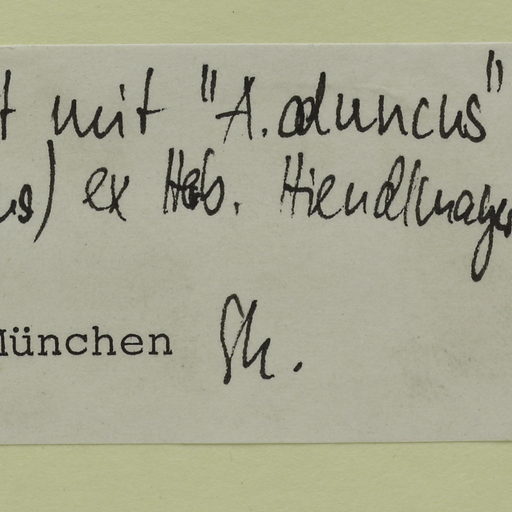 t mit "A. aduncus"
us) ex Heb. Hiendlmayer
München